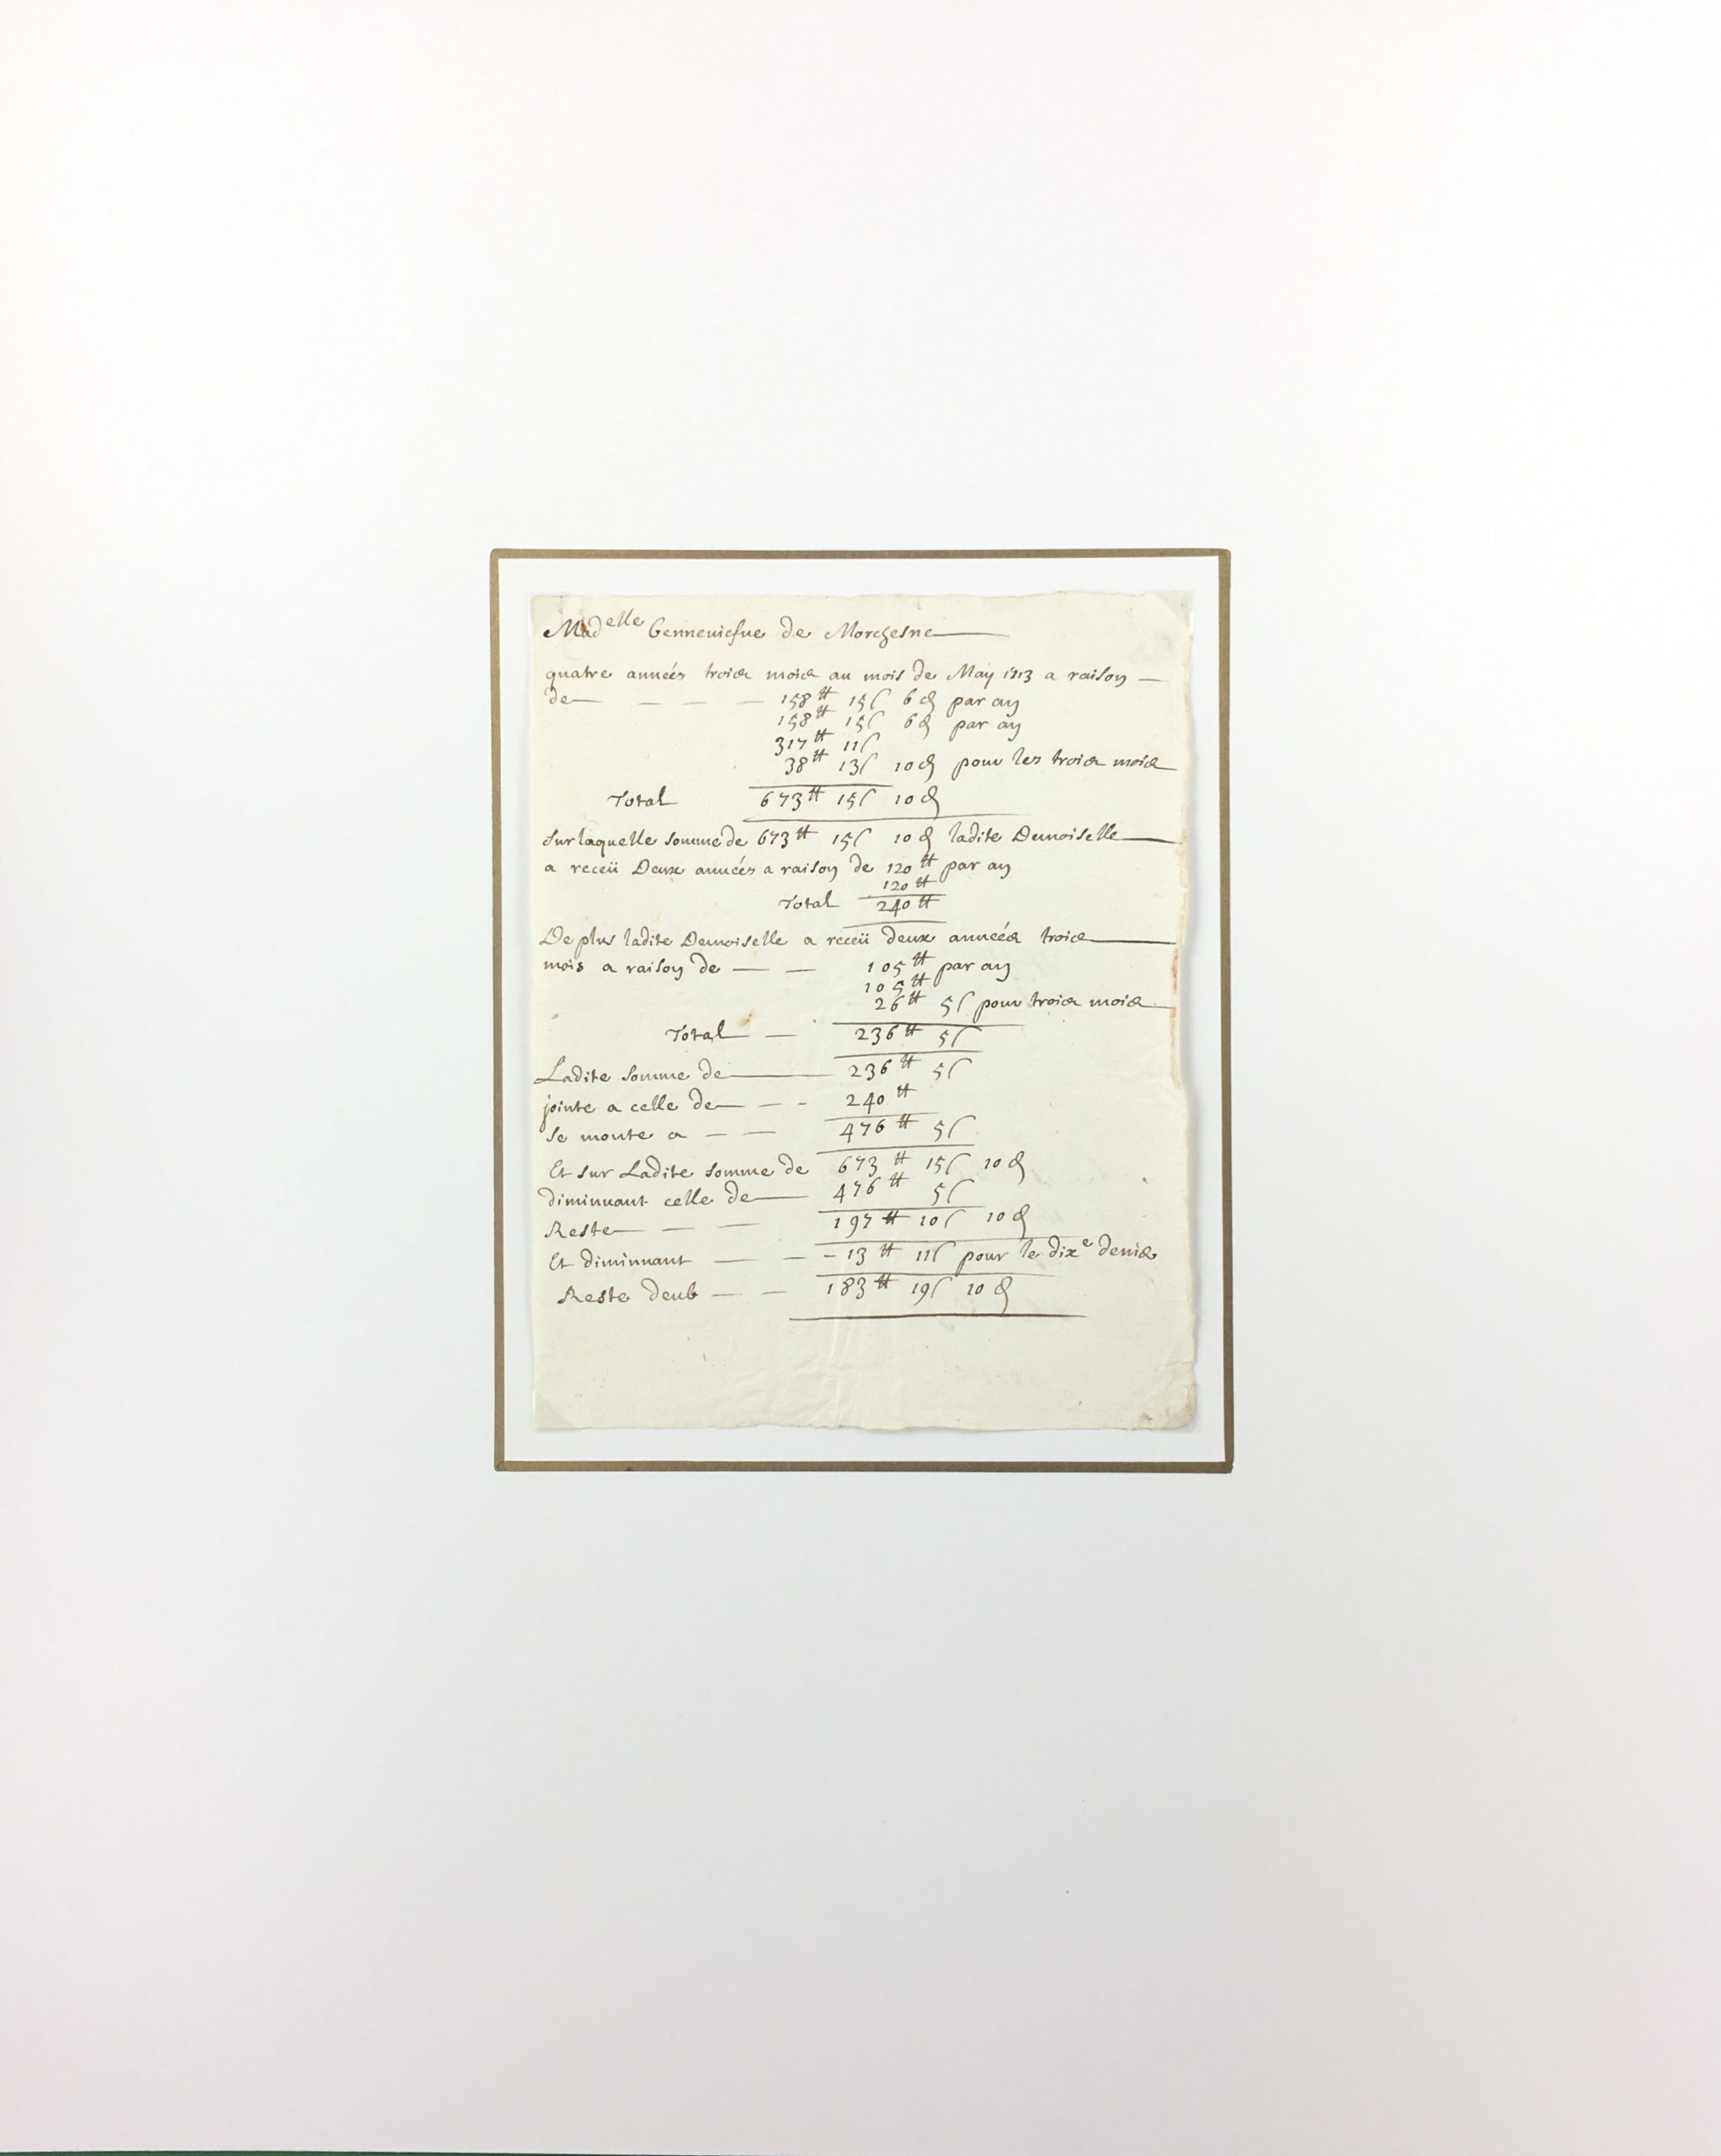 Mad<sup>elle</sup> Genneuiefue de Morchesne
quatre années trois mois au mois de May 1713 a raison
de 158 ₶ 15 ſ 6 d par an
158 ₶ 15 ſ 6 d par an
317 ₶ 11 ſ
38 ₶ 13 ſ 10 d pour les trois mois
Total 673 ₶ 15 ſ 10 d
Sur laquelle somme de 673 ₶ 15 ſ 10 d ladite Demoiselle
a receü Deux années a raison de 120 ₶ par an
120 ₶
Total 240 ₶
De plus ladite Demoiselle a receü deux années trois
mois a raison de 105 ₶ par an
105 ₶
26 ₶ 5 ſ pour trois mois
Total 236 ₶ 5 ſ
Ladite somme de 236 ₶ 5 ſ
jointe a celle de 240 ₶
se monte a 476 ₶ 5 ſ
Et sur Ladite somme de 673 ₶ 15 ſ 10 d
diminuant celle de 476 ₶ 5 ſ
Reste 197 ₶ 10 ſ 10 d
Et diminuant 13 ₶ 11 ſ pour le dix<sup>e</sup> denier
Reste deub 183 ₶ 19 ſ 10 d